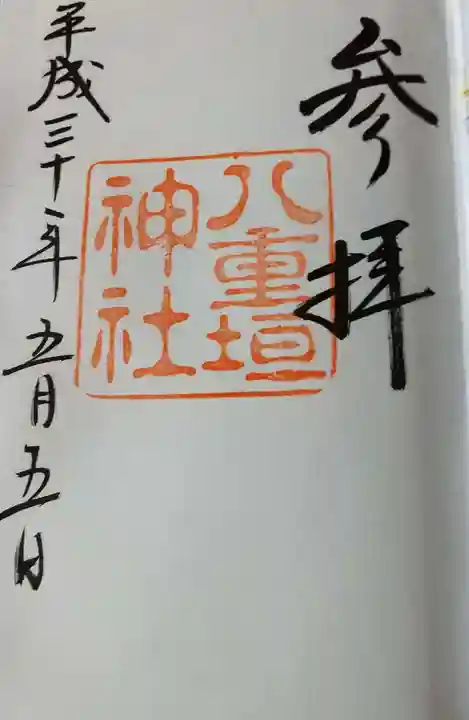 参拝
八重垣
神社
平成三十年五月五日